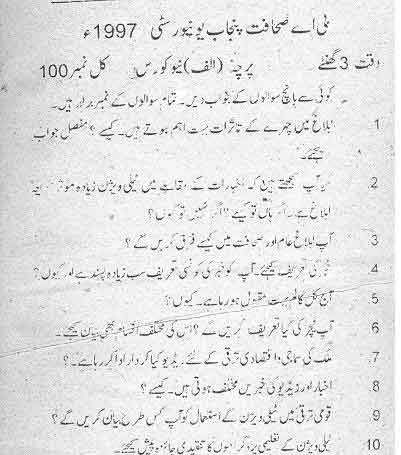 بی اے صحافت پنجاب یونیورسٹی 1997ء
وقت 3 گھنٹے پرچہ (الف) نیو کورس کل نمبر 100
کوئی سے پانچ سوالوں کے جواب دیں۔ تمام سوالوں کے نمبر برابر ہیں۔
1 ابلاغ میں چہرے کے تاثرات بہت اہم ہوتے ہیں۔ کیسے؟ مفصل جواب
دیجئے۔
2. کیا آپ سمجھتے ہیں کہ اخبارات کے مقابلے میں ٹیلی ویژن زیادہ موثر ذریعہ
ابلاغ ہے۔ اگر ہاں تو کیسے؟ اگر نہیں تو کیوں؟
3 آپ ابلاغ عام اور صحافت میں کیسے فرق کریں گے؟
4 خبر کی تعریف کیجئے۔ آپ کو خبر کی کونسی تعریف سب زیادہ پسند ہے اور کیوں؟
5 آج کل کالم بہت مقبول ہو رہا ہے۔ کیوں؟
6 آپ فیچر کی کیا تعریف کریں گے؟ اس کی مختلف اقسام بھی بیان کیجئے۔
7. ملک کی سماجی، اقتصادی ترقی کے لئے ریڈیو کیا کردار ادا کر رہا ہے۔؟
8. اخبار اور ریڈیو کی خبریں مختلف ہوتی ہیں۔ کیسے؟
9. قومی ترقی میں ٹیلی ویژن کے استعمال کو آپ کس طرح بیان کریں گے؟
10. ٹیلی ویژن کے تعلیمی پروگراموں کا تنقیدی جائزہ پیش کیجئے۔